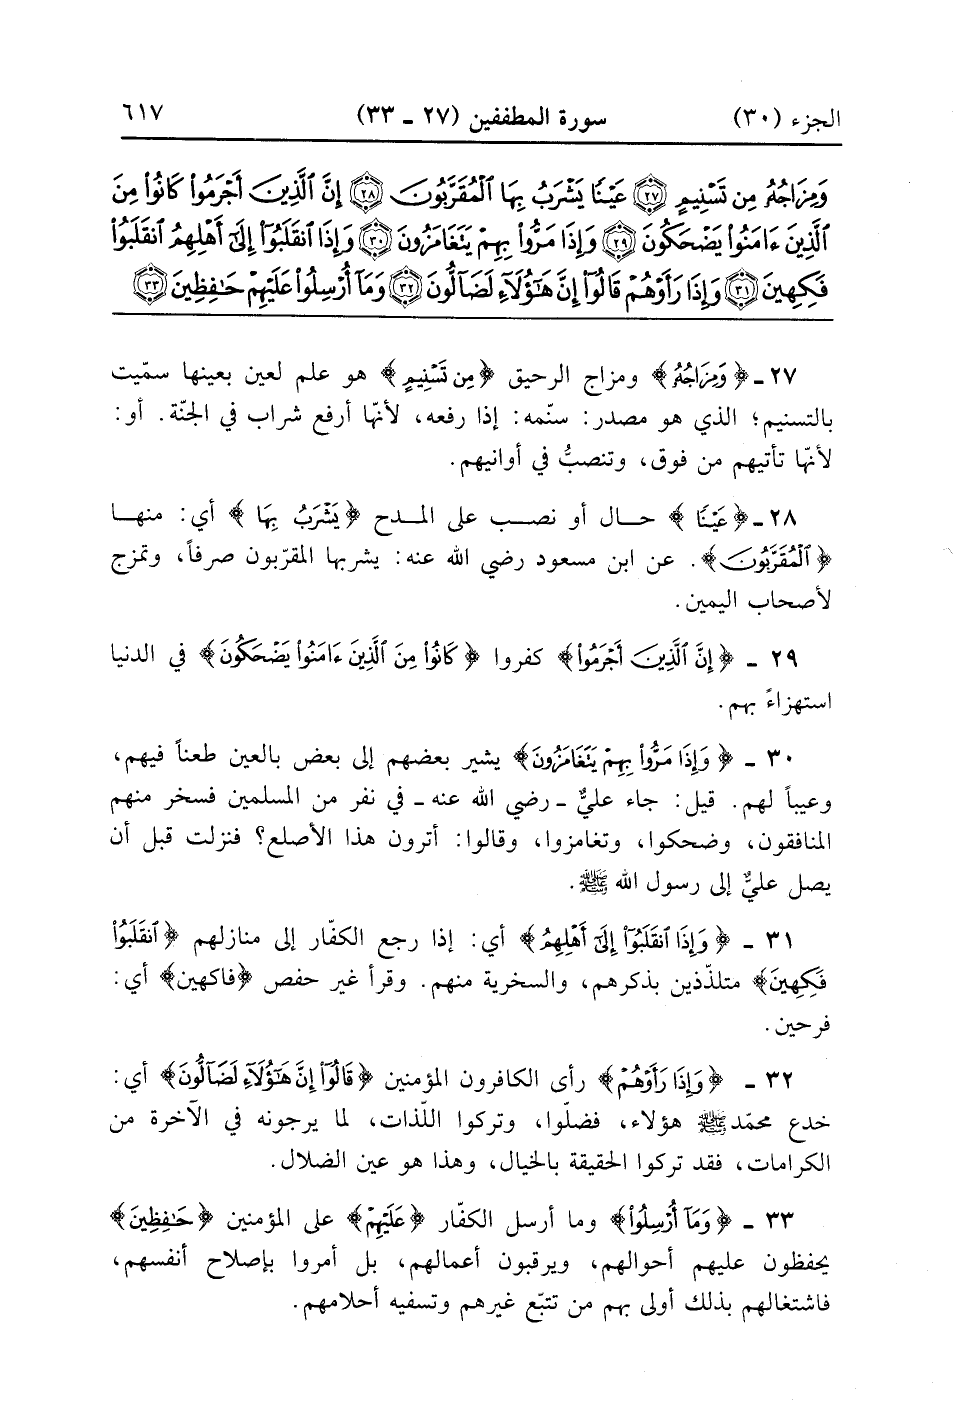 الجزء (٣٠) سورة المطففين (٢٧ ـ ٣٣) ٦١٧
وَمِزَاجُهُۥ مِن تَسْنِيمٍ ﴿٢٧﴾ عَيْنًا يَشْرَبُ بِهَا ٱلْمُقَرَّبُونَ ﴿٢٨﴾ إِنَّ ٱلَّذِينَ أَجْرَمُوا۟ كَانُوا۟ مِنَ
ٱلَّذِينَ ءَامَنُوا۟ يَضْحَكُونَ ﴿٢٩﴾ وَإِذَا مَرُّوا۟ بِهِمْ يَتَغَامَزُونَ ﴿٣٠﴾ وَإِذَا ٱنقَلَبُوٓا۟ إِلَىٰٓ أَهْلِهِمُ ٱنقَلَبُوا۟
فَكِهِينَ ﴿٣١﴾ وَإِذَا رَأَوْهُمْ قَالُوٓا۟ إِنَّ هَٰٓؤُلَآءِ لَضَآلُّونَ ﴿٣٢﴾ وَمَآ أُرْسِلُوا۟ عَلَيْهِمْ حَٰفِظِينَ ﴿٣٣﴾
٢٧ ـ ﴿وَمِزَاجُهُۥ﴾ ومزاج الرحيق ﴿مِن تَسْنِيمٍ﴾ هو علم لعين بعينها سمّيت
بالتسنيم؛ الذي هو مصدر: سنّمه: إذا رفعه، لأنّها أرفع شراب في الجنّة. أو:
لأنّها تأتيهم من فوق، وتنصبُّ في أوانيهم.
٢٨ ـ ﴿عَيْنًا﴾ حال أو نصب على المدح ﴿يَشْرَبُ بِهَا﴾ أي: منها
﴿ٱلْمُقَرَّبُونَ﴾. عن ابن مسعود رضي الله عنه: يشربها المقرّبون صرفاً، وتمزج
لأصحاب اليمين.
٢٩ ـ ﴿إِنَّ ٱلَّذِينَ أَجْرَمُوا۟﴾ كفروا ﴿كَانُوا۟ مِنَ ٱلَّذِينَ ءَامَنُوا۟ يَضْحَكُونَ﴾ في الدنيا
استهزاءً بهم.
٣٠ ـ ﴿وَإِذَا مَرُّوا۟ بِهِمْ يَتَغَامَزُونَ﴾ يشير بعضهم إلى بعض بالعين طعناً فيهم،
وعيباً لهم. قيل: جاء عليٌّ ـ رضي الله عنه ـ في نفر من المسلمين فسخر منهم
المنافقون، وضحكوا، وتغامزوا، وقالوا: أترون هذا الأصلع؟ فنزلت قبل أن
يصل عليٌّ إلى رسول الله ﷺ.
٣١ ـ ﴿وَإِذَا ٱنقَلَبُوٓا۟ إِلَىٰٓ أَهْلِهِمُ﴾ أي: إذا رجع الكفّار إلى منازلهم ﴿ٱنقَلَبُوا۟
فَكِهِينَ﴾ متلذّذين بذكرهم، والسخرية منهم. وقرأ غير حفص ﴿فاكهين﴾ أي:
فرحين.
٣٢ ـ ﴿وَإِذَا رَأَوْهُمْ﴾ رأى الكافرون المؤمنين ﴿قَالُوٓا۟ إِنَّ هَٰٓؤُلَآءِ لَضَآلُّونَ﴾ أي:
خدع محمّد ﷺ هؤلاء، فضلّوا، وتركوا اللّذات، لما يرجونه في الآخرة من
الكرامات، فقد تركوا الحقيقة بالخيال، وهذا هو عين الضلال.
٣٣ ـ ﴿وَمَآ أُرْسِلُوا۟﴾ وما أرسل الكفّار ﴿عَلَيْهِمْ﴾ على المؤمنين ﴿حَٰفِظِينَ﴾
يحفظون عليهم أحوالهم، ويرقبون أعمالهم، بل أمروا بإصلاح أنفسهم،
فاشتغالهم بذلك أولى بهم من تتبّع غيرهم وتسفيه أحلامهم.